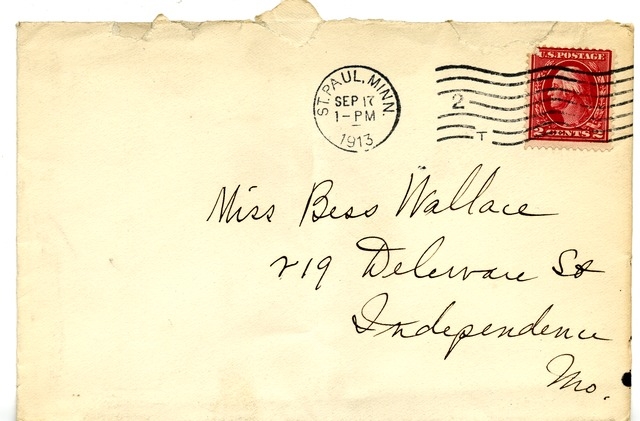 U.S. POSTAGE
ST. PAUL, MINN.
SEP 17
1-PM
1913
2
T
2 CENTS 2
Miss Bess Wallace
219 Deleware St
Independence
Mo.